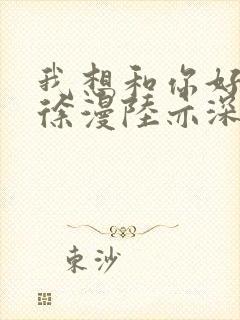 我想和你好
徐漫陸亦深
東沙